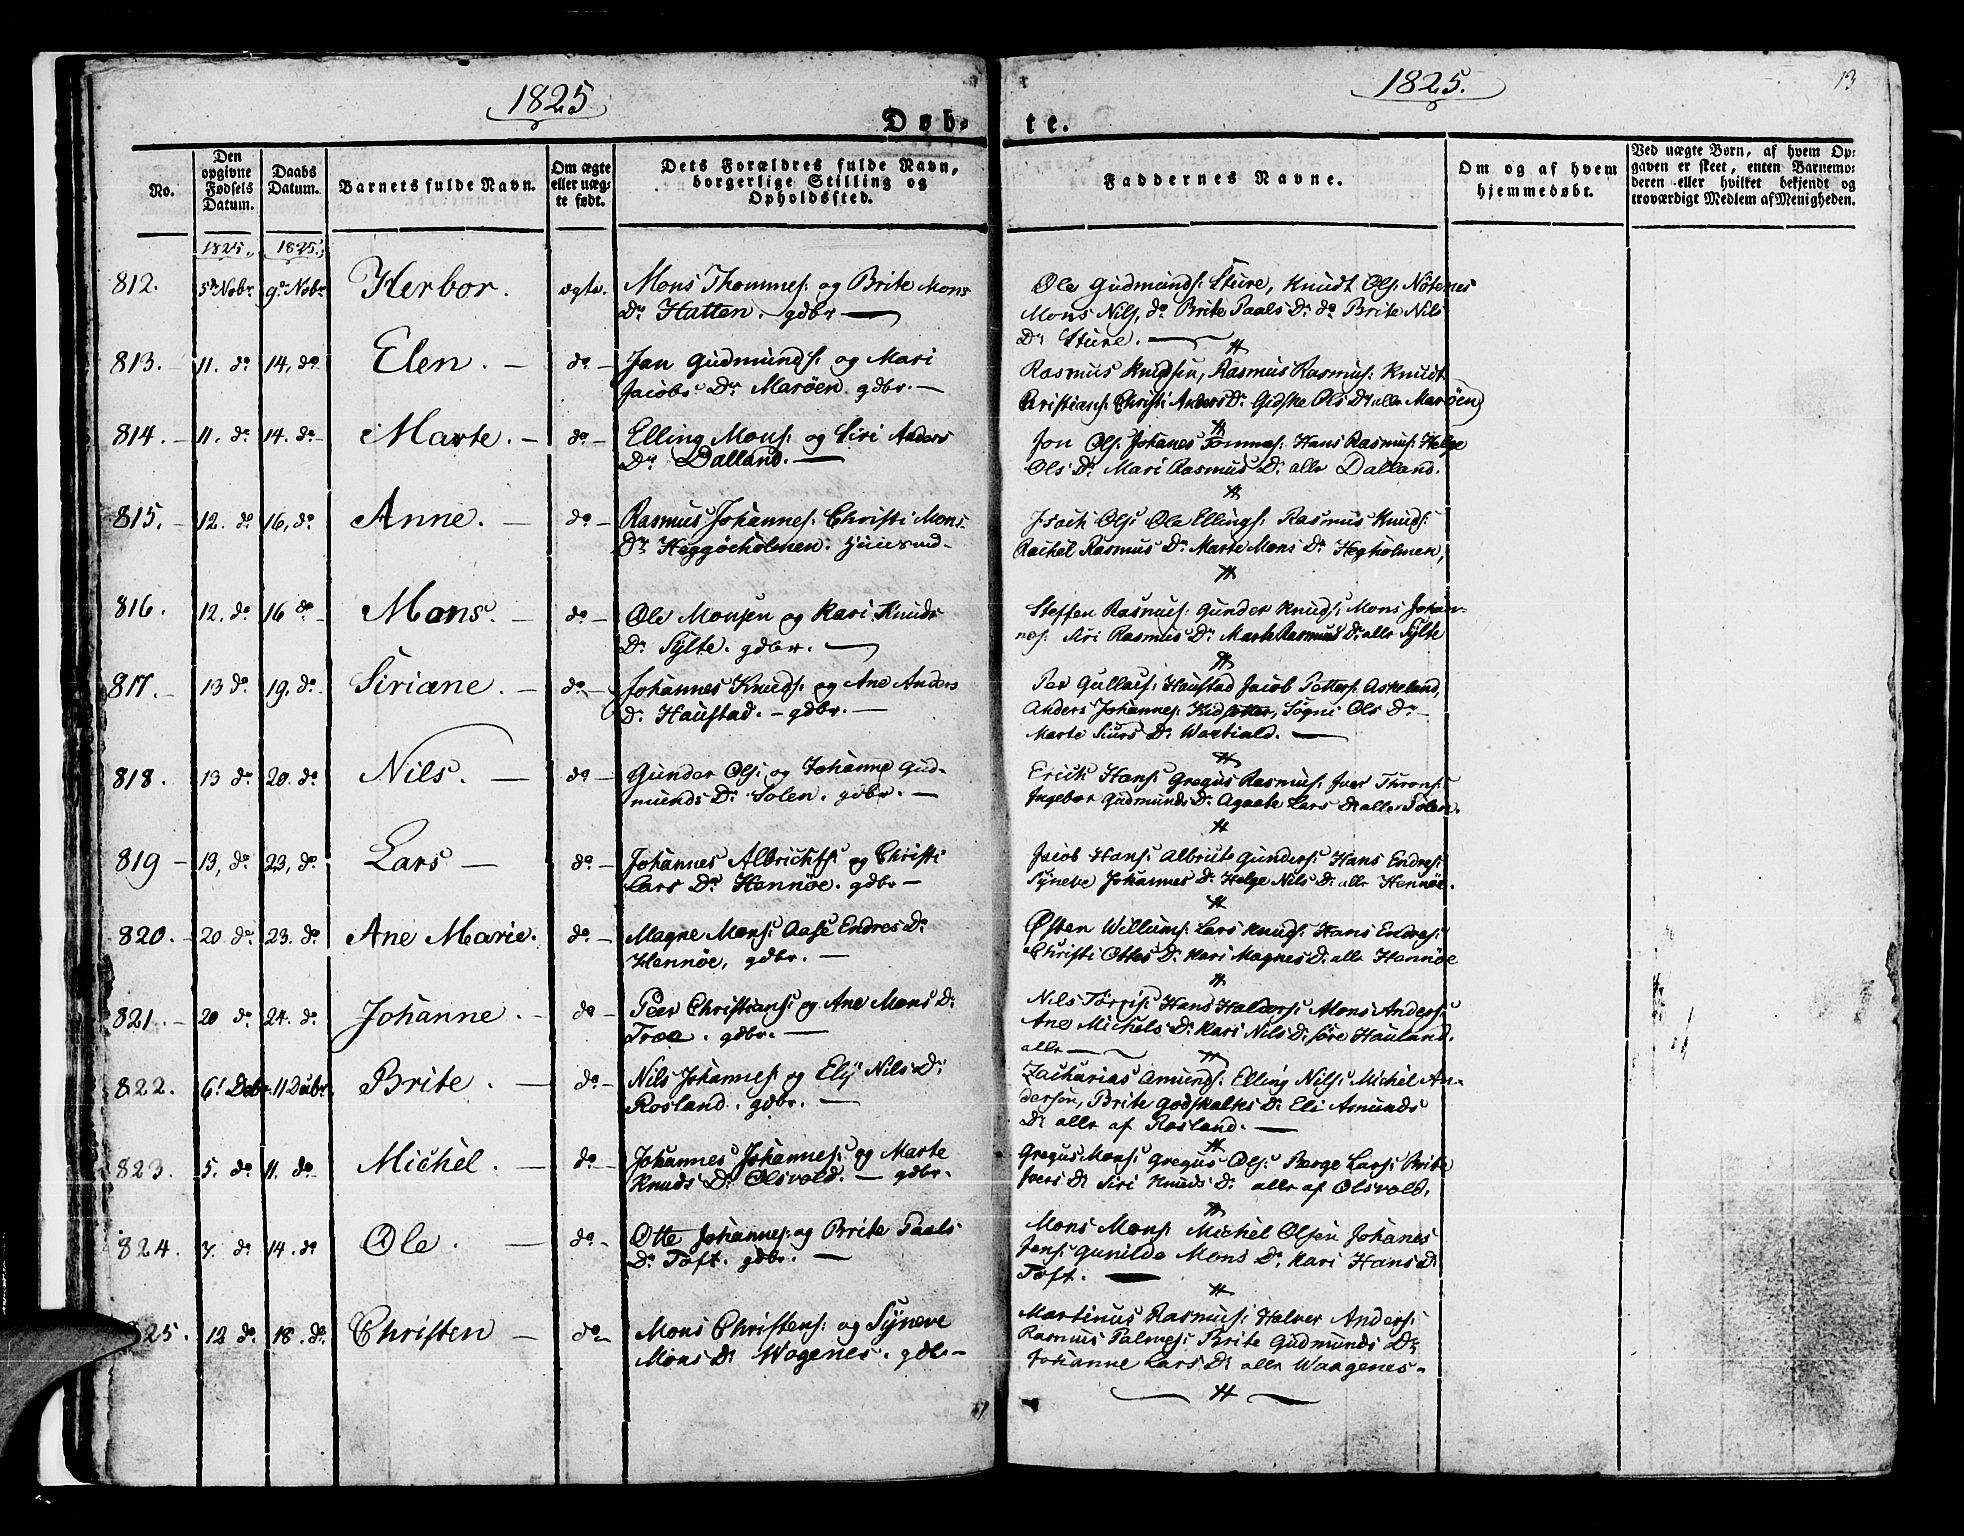 1825
1825.
13
Døb-
te.
No.
Den opgivne Fødsels Datum.
Daabs Datum.
Barnets fulde Navn.
Om ægte eller uæg- te født.
Dets Forældres fulde Navn, borgerlige Stilling og Opholdssted.
Faddernes Navne.
Om og af hvem hjemmedøbt.
Ved uægte Børn, af hvem Op- gaven er skeet, enten Barnemo- deren eller hvilket bekjendt og troværdigt Medlem af Menigheden.
1825. 1825.
812. 5te Nobr 9de Nobr Herbor. ægte. Mons Thommes: og Brite Mons
Dr Hatten. gdbr —
Ole Gudmunds: Sture, Knudt Ols: Nótenes
Mons Nils, do Brite Paals Dr do Brite Nils
Dr Sture. —
813. — 11. do 14, do Elen. — do — Jan Gudmunds: og Mari
Jacobs Dr Marøen gdbr. —
Rasmus Knudsen, Rasmus Rasmus: Knudt
Kristians: Christi Anders Dr Gidske Ols Dr alle Marøen
814. — 11. do 14. do — Marte. — do — Elling Mons: og Siri Anders
Dr Dalland. —
Jon Ols: Johanes Tommes: Hans Rasmus: Helge
Ols Dr Mari Rasmus Dr alle Dalland.
815. — 12. do 16, do Anne. — do — Rasmus Johannes: Christi Mons
Dr Heggøeholmen.
Isach Ols: Ole Ellings: Rasmus Knuds:
Rachel Rasmus Dr Marte Mons Dr Hegholmen,
816. 12. do 16 do — Mons. — do — Ole Monsen og Kari Knuds
Dr Sylte. gdbr. —
Steffen Rasmus: Gunder Knuds: Mons Johan-
nes: Siri Rasmus Dr Marte Rasmus Dr alle Sylte
817. — 13 do 19, do Siriane. — do — Johannes Knuds: og Ane Anders
Dr Haustad. — gdbr. —
Per Gullacs: Haustad Jacob Petters: Askeland,
Anders Johannes: Sogni Ols Dr —
Marte Siurs Dr —
818. 13 do 20. do Nils. — do — Gunder Ols: og Johanne Gud-
munds Dr Solen. gdbr. —
Erich Hans: Gregus Rasmus: Iver Throns:
Ingebor Gudmunds Dr Agaate Lars Dr alle Solen.
819 — 13, do 23, do Lars — do — Johannes Albrichts: og Christi
Lars Dr Hennøe. gdbr —
Jacob Hans: Albrite Gunders: Hans Endres:
Syneve Johannes Dr Helge Nils Dr alle Hennøe.
820. — 20 do 23. do Ane Marie. do — Magne Mons: Aase Endres Dr
Hennøe, gdbr. —
Østen Willums: Lars Knuds: Hans Endres:
Christi Ottes Dr Kari Magnes Dr alle Hennøe
821. — 20 do 24. do Johanne. — do — Peer Christians: og Ane Mons Dr
Troe. gdbr. —
Nils Torris: Hans Haldors: Mons Anders:
Ane Michels Dr Kari Nils Dr søre Hauland.
alle —
822. 6t Debr. 11 Debr. Brite. — do — Nils Johannes: og Elj Nils Dr
Rosland. gdbr. —
Zacharias Amunds: Elling Nils: Michel An-
dersen, Brite Godskalks Dr Eli Amunds
Dr alle af Rosland. —
823. 5. do 11. do Michel. — do — Johannes Johannes: og Marte
Knuds Dr Olsvold. — gdbr.
Gregus Mons: Gregus Ols: Berge Lars: Brite
Ivers Dr Siri Knuds Dr alle af Olsvold.
824. 7. do 14. do Ole. — do — Otte Johannes: og Brite Paals
Dr Toft. gdbr. —
Mons Mons: Michel Olsen Johanes
Jens: Gunilde Mons Dr, Kari Hans Dr
Toft. —
825. 12 do 18. do Christen — do — Mons Christens: og Syneve
Mons Dr Wogenes. gdb. —
Martinus Rasmus: Halver Anders:
Rasmus Palmes: Brite Gudmunds Dr
Johanne Lars Dr alle Waagenes —